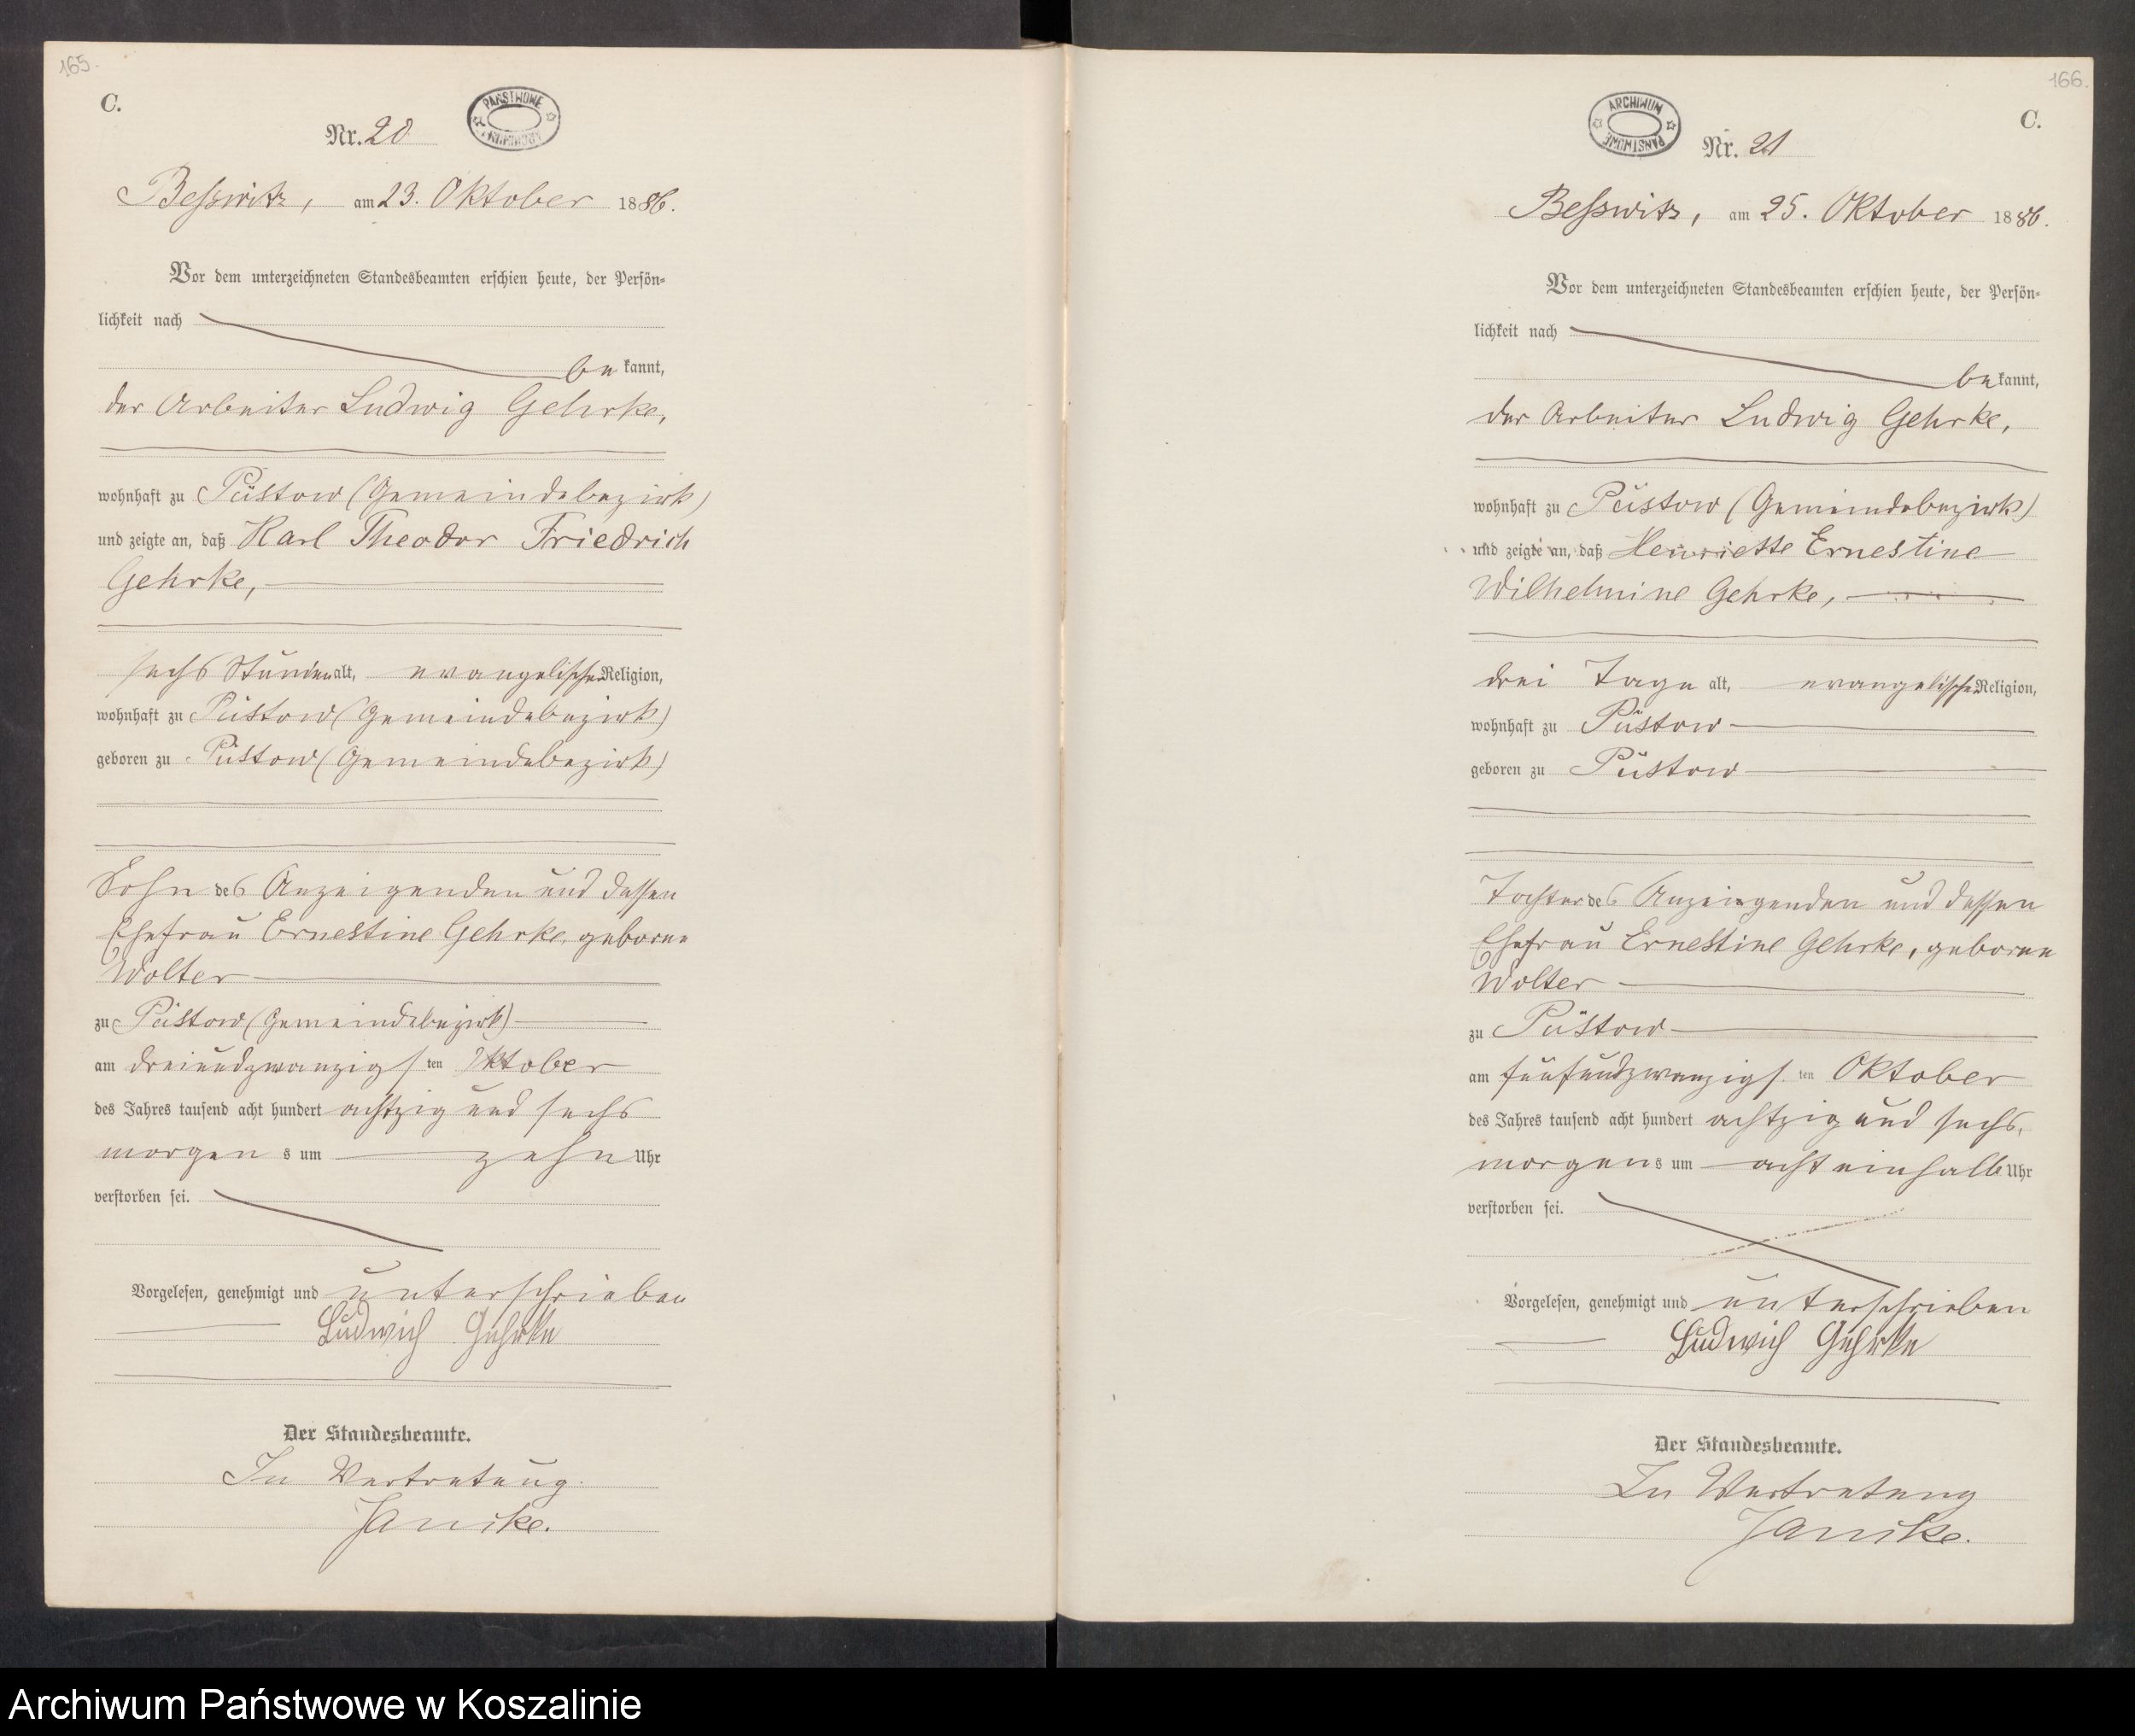 165.
C.
PAŃSTWOWE ARCHIWUM
Nr. 20
Besswitz, am 23. Oktober 1886.
Vor dem unterzeichneten Standesbeamten erschien heute, der Persön-
lichkeit nach
bekannt,
der Arbeiter Ludwig Gehrke,
wohnhaft zu Püstow (Gemeindebezirk)
und zeigte an, daß Karl Theodor Friedrich
Gehrke,
sechs Stunden alt, evangelischer Religion,
wohnhaft zu Püstow (Gemeindebezirk)
geboren zu Püstow (Gemeindebezirk)
Sohn des Anzeigenden und dessen
Ehefrau Ernestine Gehrke, geborne
Wolter
zu Püstow (Gemeindebezirk)
am dreiundzwanzigsten Oktober
des Jahres tausend acht hundert achtzig und sechs
morgens um zehn Uhr
verstorben sei.
Vorgelesen, genehmigt und unterschrieben
Ludwich Gehrke
Der Standesbeamte.
In Vertretung.
Janike.
166.
C.
ARCHIWUM PAŃSTWOWE
Nr. 21
Besswitz, am 25. Oktober 1886.
Vor dem unterzeichneten Standesbeamten erschien heute, der Persön-
lichkeit nach
bekannt,
der Arbeiter Ludwig Gehrke,
wohnhaft zu Püstow (Gemeindebezirk)
und zeigte an, daß Henriette Ernestine
Wilhelmine Gehrke,
drei Tage alt, evangelischer Religion,
wohnhaft zu Püstow
geboren zu Püstow
Tochter des Anzeigenden und dessen
Ehefrau Ernestine Gehrke, geborne
Wolter
zu Püstow
am fünfundzwanzigsten Oktober
des Jahres tausend acht hundert achtzig und sechs,
morgens um acht einhalb Uhr
verstorben sei.
Vorgelesen, genehmigt und unterschrieben
Ludwich Gehrke
Der Standesbeamte.
In Vertretung
Janike.
Archiwum Państwowe w Koszalinie